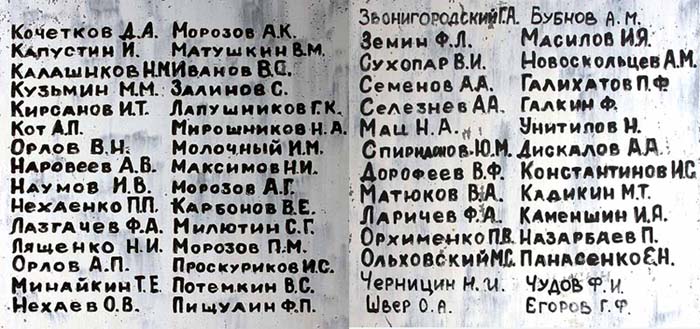 Кочетков Д.А.
Капустин И.
Калашнков Н.М
Кузьмин М.М.
Кирсанов И.Т.
Кот А.П.
Орлов В.Н.
Наровеев А.В.
Наумов И.В.
Нехаенко П.П.
Лазгачев Ф.А.
Лященко Н.И.
Орлов А.П.
Минайкин Т.Е.
Нехаев О.В.
Морозов А.К.
Матушкин В.М.
Иванов В.С.
Залинов С.
Лапушников Г.К.
Мирошников Н.А.
Молочный И.М.
Максимов Н.И.
Морозов А.Г.
Карбонов В.Е.
Милютин С.Г.
Морозов П.М.
Проскуриков И.С.
Потемкин В.С.
Пищулин Ф.П.
Звонигородский Г.А.
Земин Ф.Л.
Сухопар В.И.
Семенов А.А.
Селезнев А.А.
Мац Н.А.
Спиридонов Ю.М.
Дорофеев В.Ф.
Матюков В.А.
Ларичев Ф.А.
Орхименко П.В.
Ольховский М.С.
Черницин Н.И.
Швер О.А.
Бубнов А.М.
Масилов И.Я.
Новоскольцев А.М.
Галихатов П.Ф
Галкин Ф.
Унитилов Н.
Дискалов А.Д.
Константинов И.С.
Кадикин М.Т.
Каменшин И.Я.
Назарбаев П.
Панасенко Е.Н.
Чудов Ф.И.
Егоров Г.Ф.